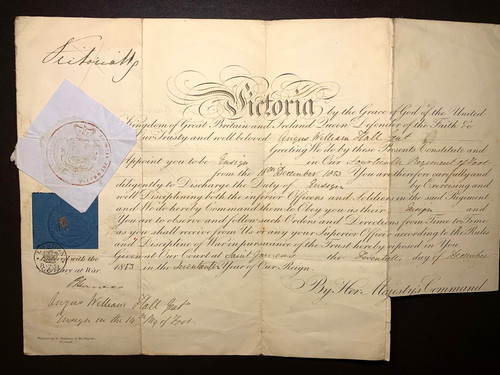 Victoria R
Victoria by the Grace of God of the United
Kingdom of Great Britain and Ireland Queen Defender of the Faith &c
To Our Trusty and well beloved Angus William Hall Gent
Greeting We do by these Presents Constitute and
Appoint you to be Ensign in Our Regiment of Foot
from the December 1853 You are therefore carefully and
diligently to Discharge the Duty of Ensign by Exercising and
well Disciplining both the inferior Officers and Soldiers in the said Regiment
and We do hereby Command them to Obey you as their Ensign
You are to observe and follow such Orders and Directions from Time to Time
as you shall receive from Us any your Superior Officer according to the Rules
and Discipline of War in pursuance of the Trust hereby reposed in You
Given at Our Court at Saint James's the day of December
1853 in the Seventeenth Year of Our Reign
By Her Majesty's Command
with the
at War
Angus William Hall Gent
Ensign in the 14th Reg of Foot